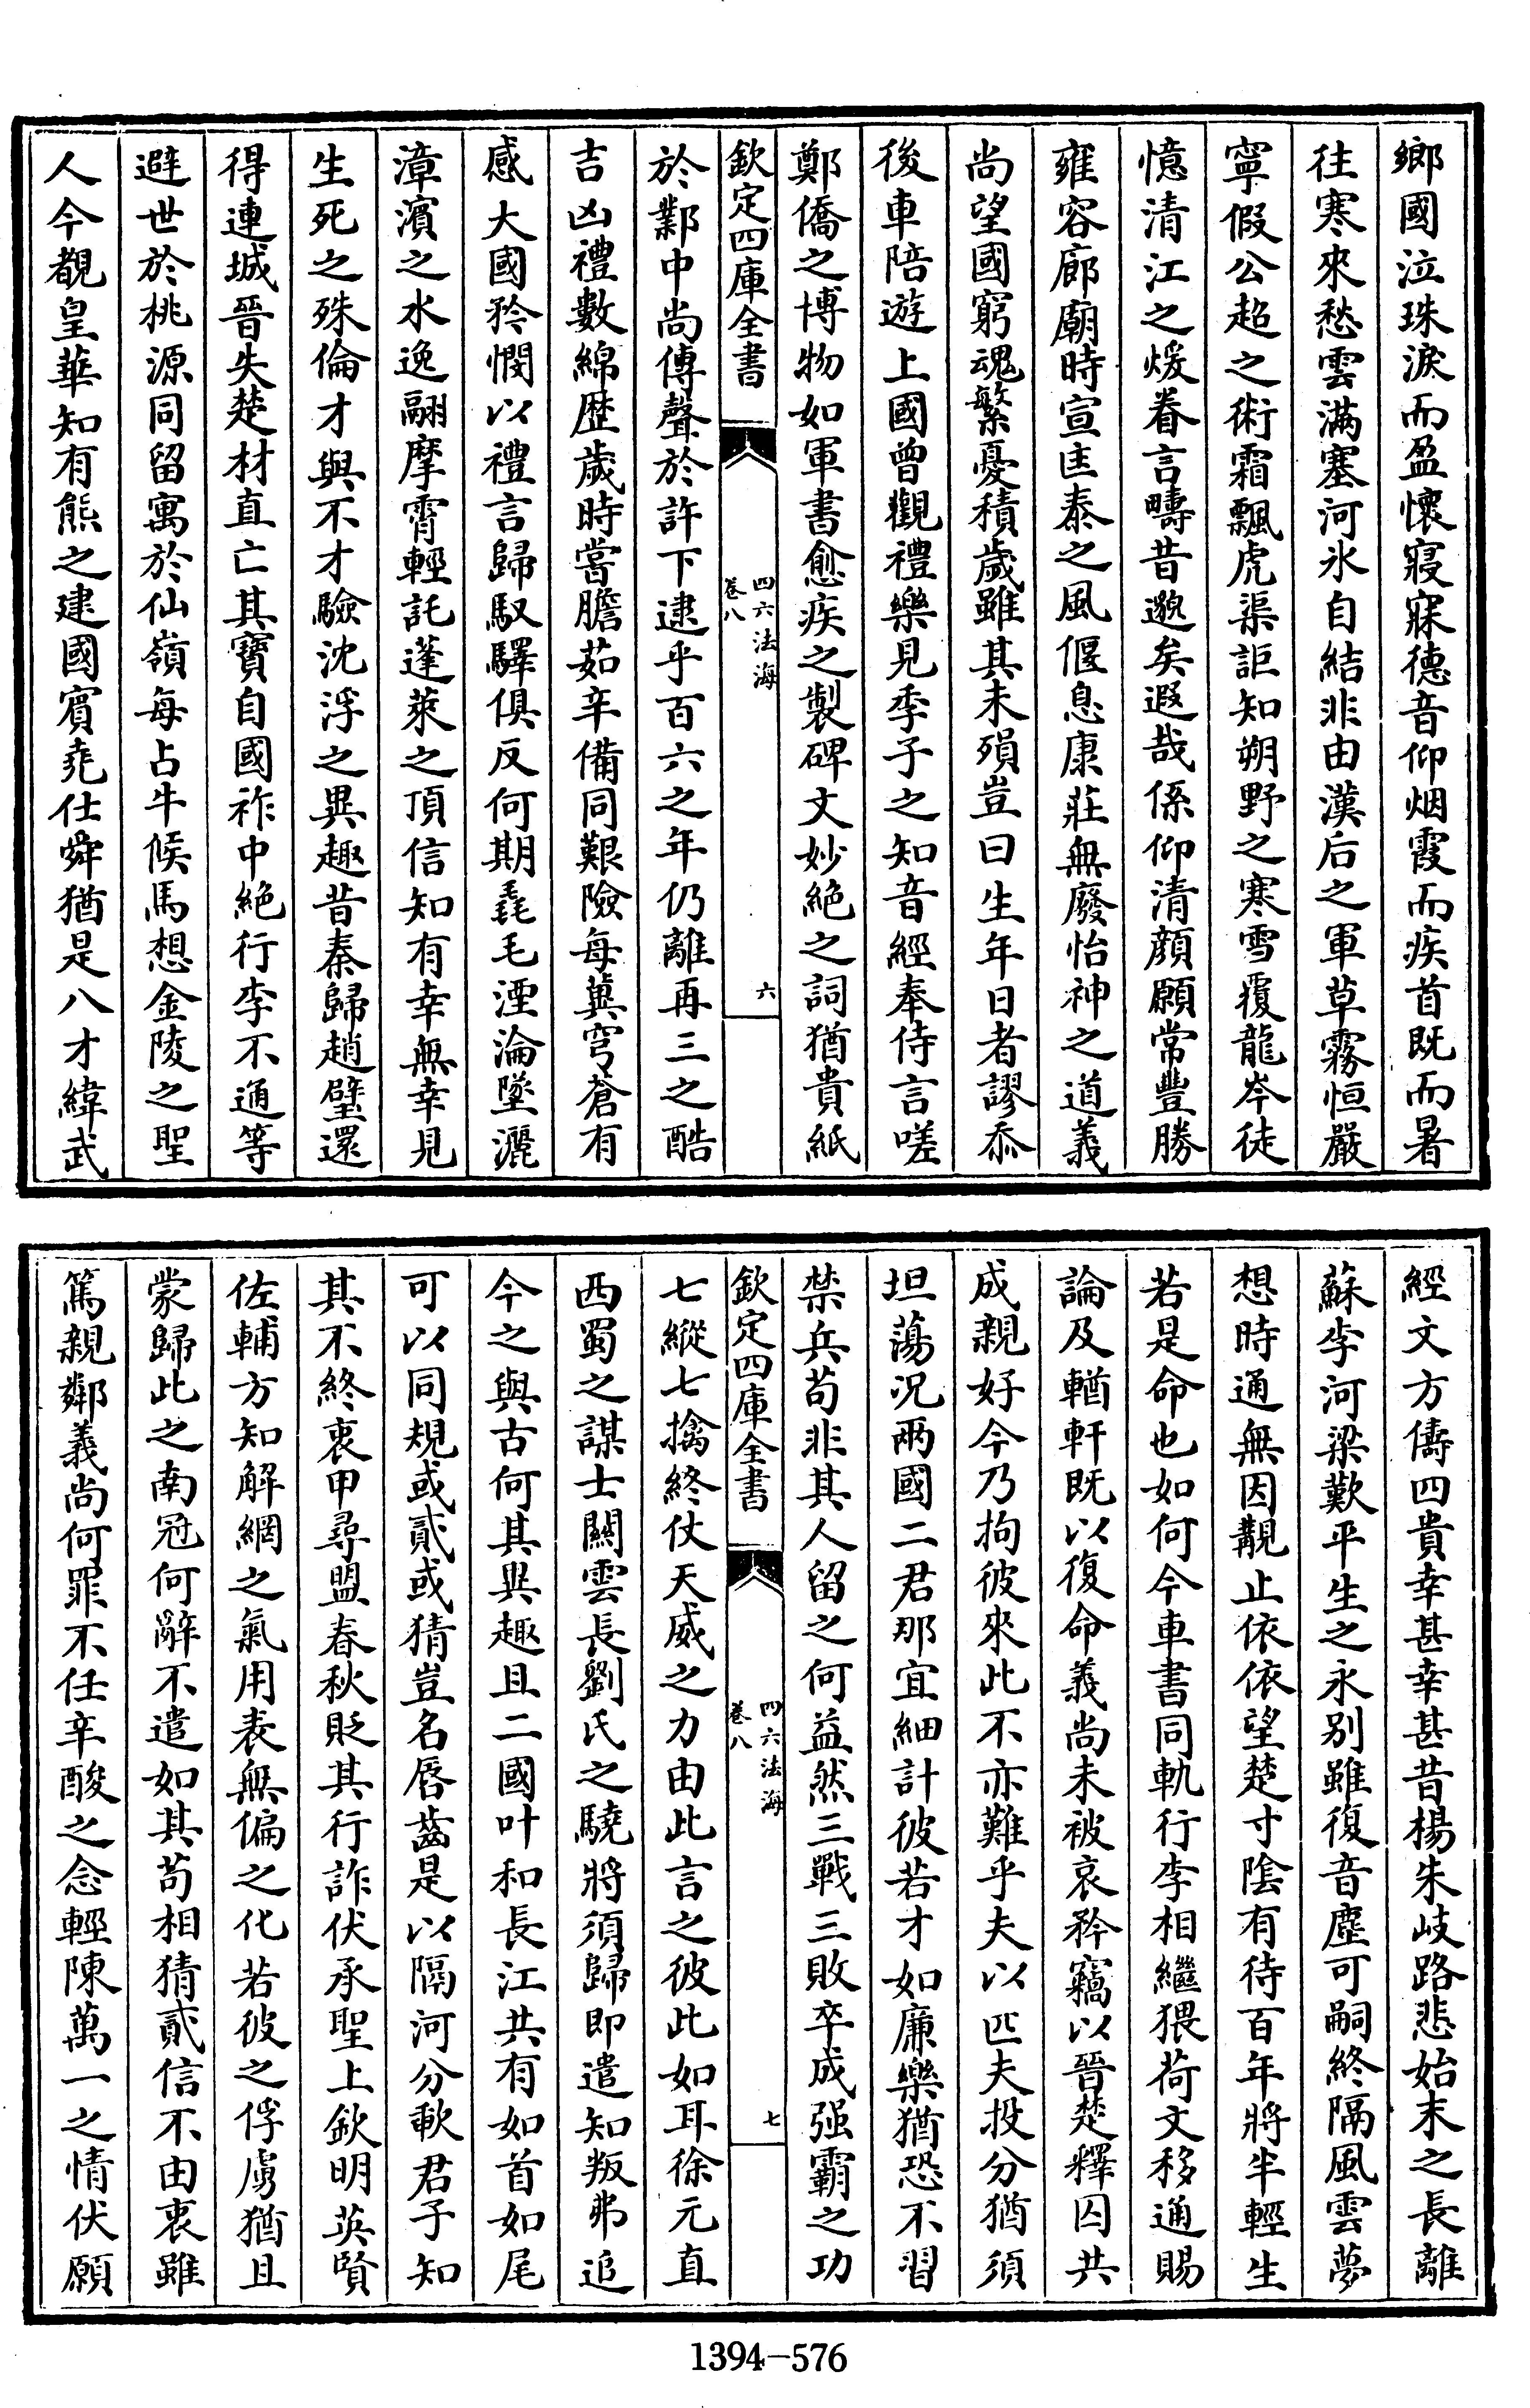 鄉國泣珠淚而盈懷寢寐德音仰烟霞而疾首既而暑
往寒來愁雲滿塞河氷自結非由漢后之軍草霧恒嚴
寧假公超之術霜飄虎渠詎知朔野之寒雪覆龍岑徒
憶清江之煖眷言疇昔邈矣遐哉係仰清顔願常豐勝
雍容廊廟時宣匡泰之風偃息康莊無廢怡神之道義
尚望國窮魂繁憂積歲雖其未殞豈曰生年日者謬忝
後車陪遊上國曾觀禮樂見季子之知音經奉侍言嗟
鄭僑之博物如軍書愈疾之製碑文妙絶之詞猶貴紙
欽定四庫全書
四六法海
卷八
六
於鄴中尚傳聲於許下逮乎百六之年仍離再三之酷
吉凶禮數綿歷歲時嘗膽茹辛備同艱險每冀穹蒼有
感大國矜憫以禮言歸馭驛俱反何期毳毛湮淪墜灑
漳濱之水逸翮摩霄輕託蓬萊之頂信知有幸無幸見
生死之殊倫才與不才驗沈浮之異趣昔秦歸趙璧還
得連城晉失楚材直亡其寳自國祚中絶行李不通等
避世於桃源同留寓於仙嶺每占牛候馬想金陵之聖
人今覩皇華知有熊之建國賓堯仕舜猶是八才緯武
經文方儔四貴幸甚幸甚昔楊朱岐路悲始末之長離
蘇李河梁歎平生之永别雖復音塵可嗣終隔風雲夢
想時通無因覯止依依望楚寸陰有待百年將半輕生
若是命也如何今車書同軌行李相繼猥荷文移通賜
論及輶軒既以復命義尚未被哀矜竊以晉楚釋囚共
成親好今乃拘彼來此不亦難乎夫以匹夫投分猶須
坦蕩况兩國二君那宜細計彼若才如廉樂猶恐不習
禁兵苟非其人留之何益然三戰三敗卒成强霸之功
欽定四庫全書
四六法海
卷八
七
七縱七擒終仗天威之力由此言之彼此如耳徐元直
西蜀之謀士關雲長劉氏之驍將須歸即遣知叛弗追
今之與古何其異趣且二國叶和長江共有如首如尾
可以同規或貳或猜豈名唇齒是以隔河分軟君子知
其不終衷甲尋盟春秋貶其行詐伏承聖上欽明英賢
佐輔方知解網之氣用表無偏之化若彼之俘虜猶且
蒙歸此之南冠何辭不遣如其苟相猜貳信不由衷雖
篤親鄰義尚何罪不任辛酸之念輕陳萬一之情伏願
1394-576